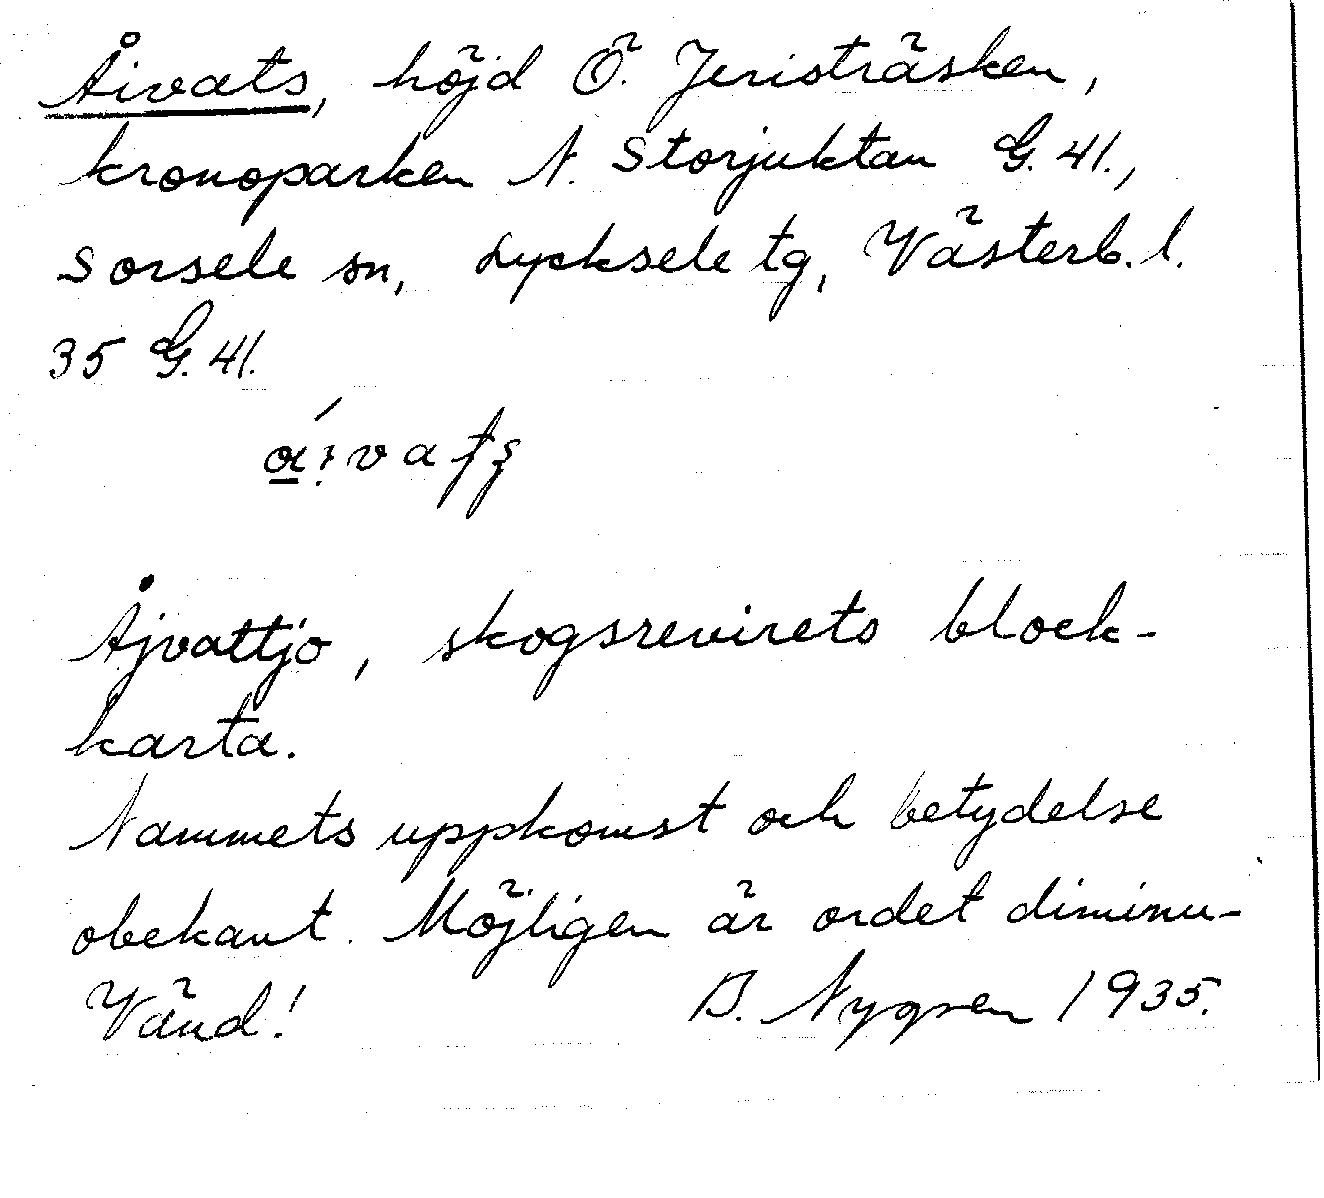 Åivats, höjd Ö. Jeristräsken,
kronoparken N. Storjuktan G. 41.,
Sorsele sn, Lycksele tg, Västerb. l.
35 G. 41.
Åjvattjo, skogsrevirets block-
karta.
Namnets uppkomst och betydelse
obekant. Möjligen är ordet diminu-
Vänd! B. Nygren 1935.